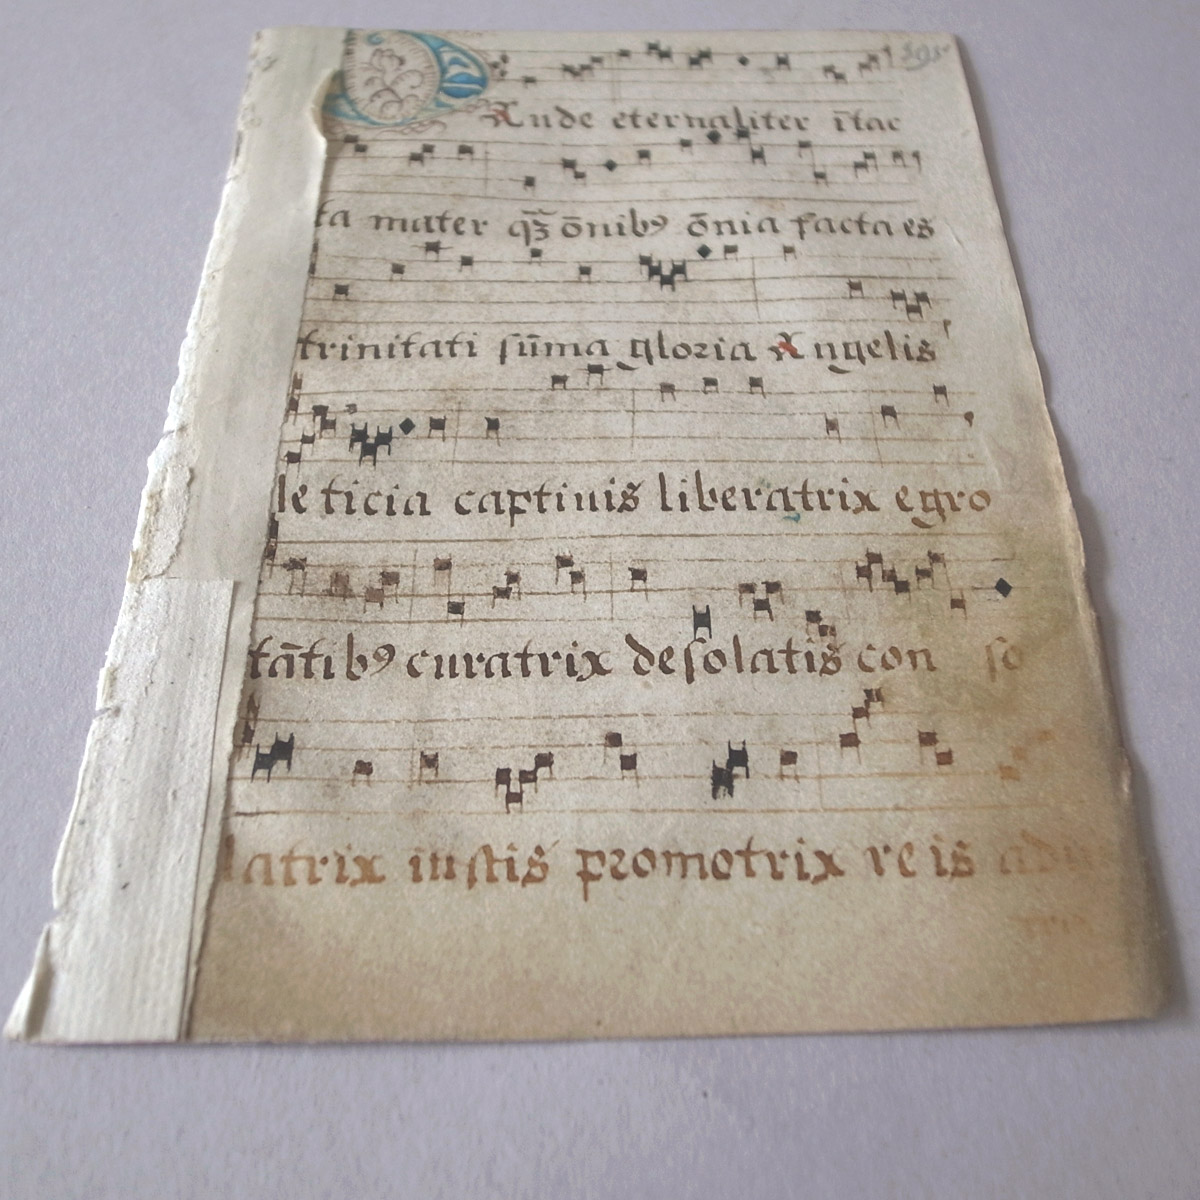 Aude eternaliter ītac
ta mater qʒ̄ ōnibꝰ ōnia facta es
trinitati sūma gloria Angelis
leticia captiuis liberatrix egro
tātibꝰ curatrix desolatis con so
latrix iustis promotrix reis